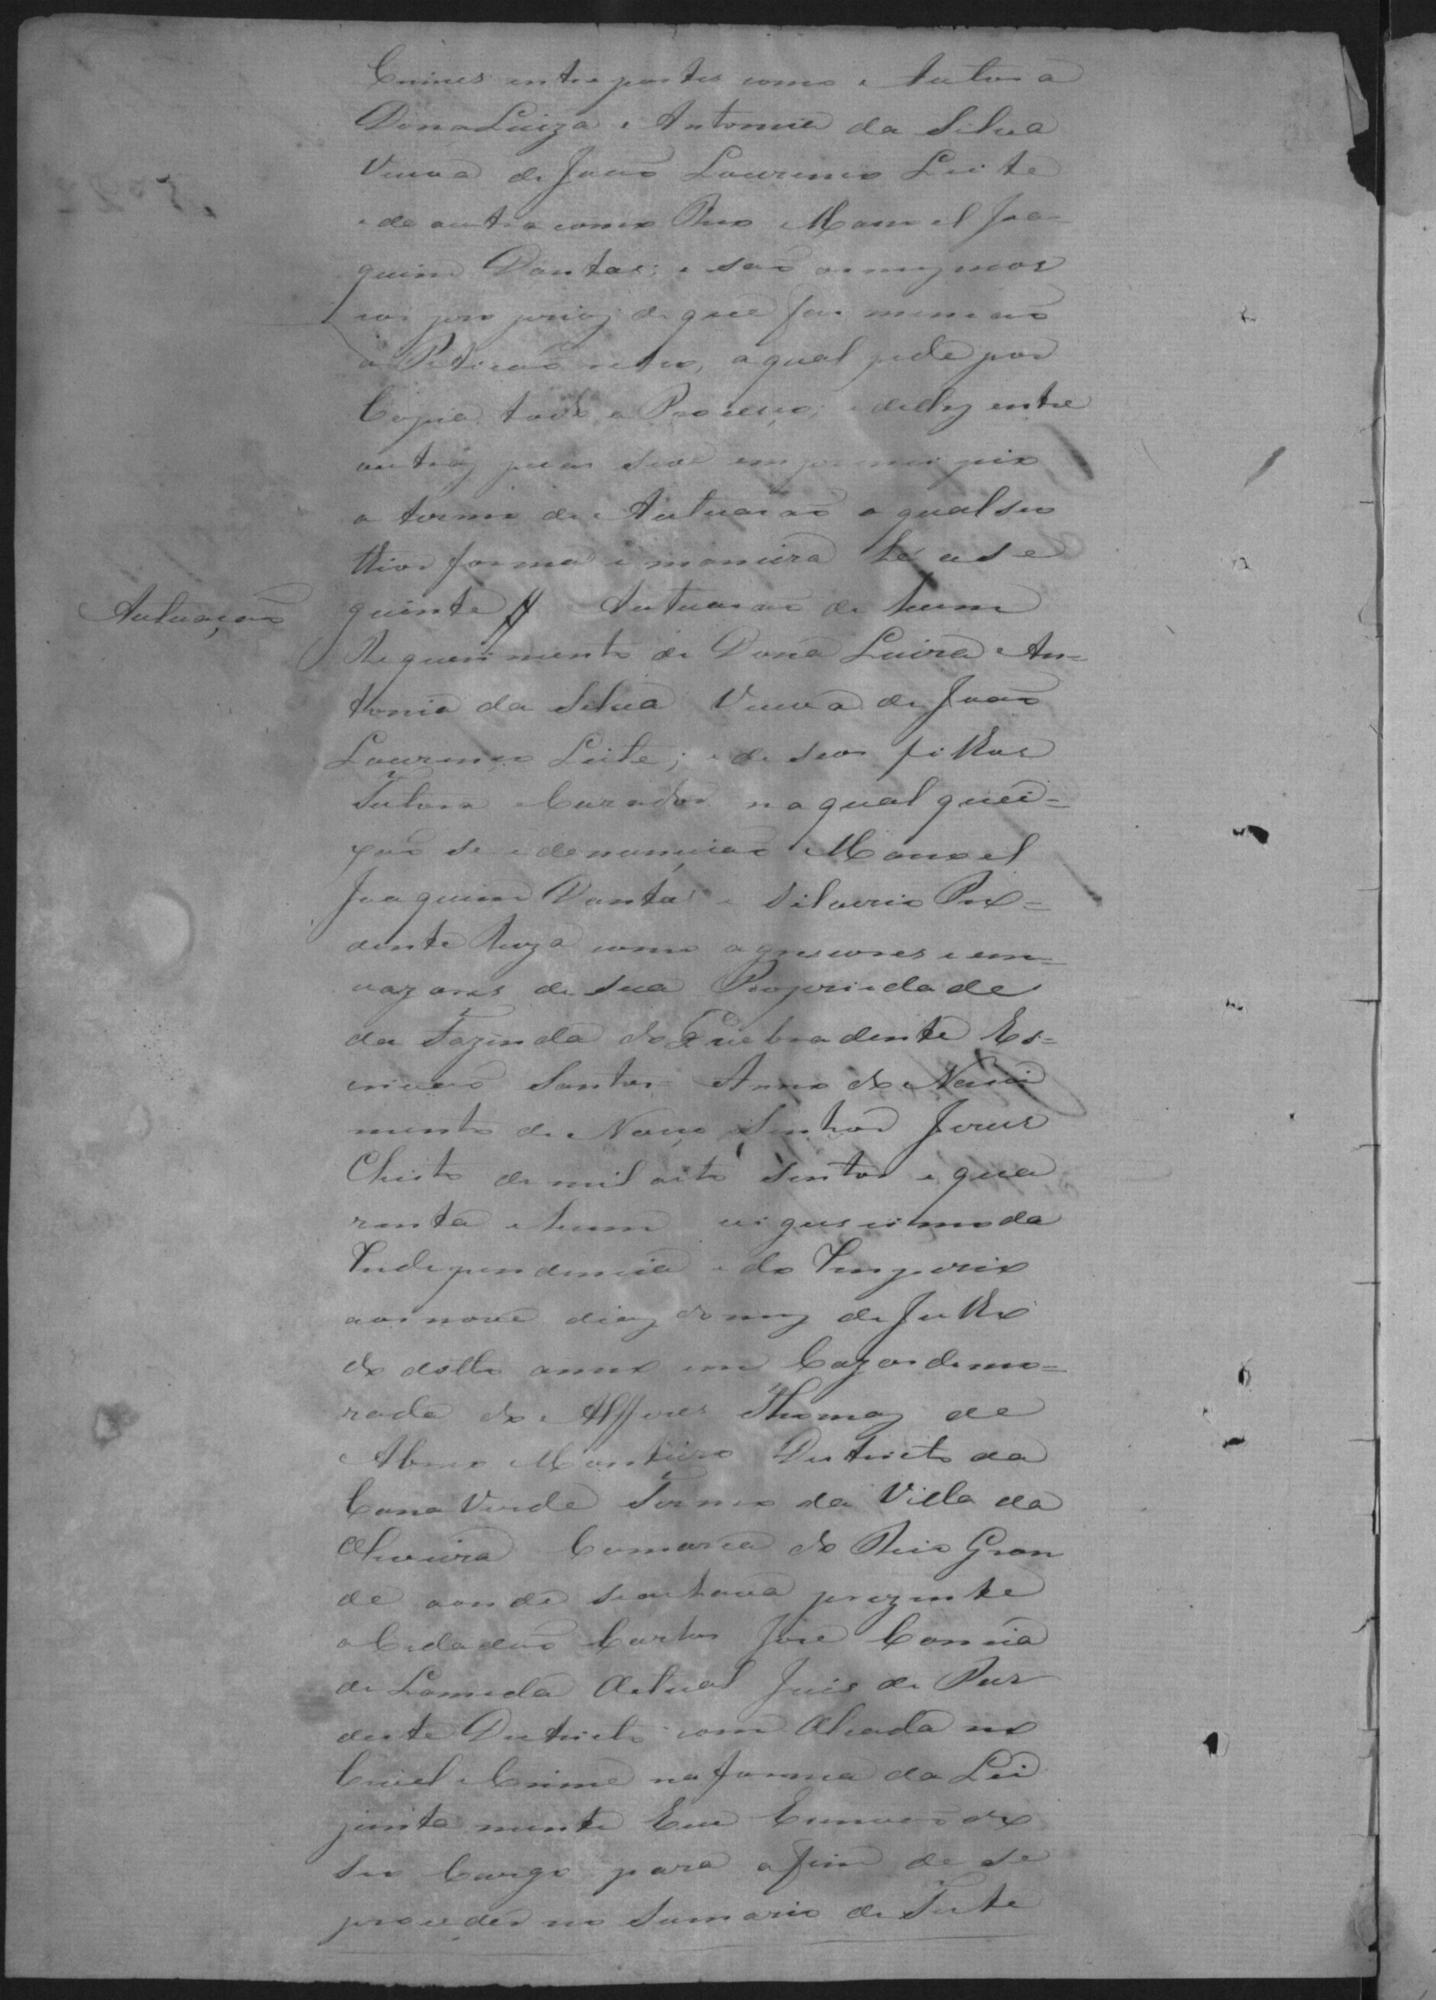 Crimes entre partes como Autora
Dona Luiza Antonia da Silva
Viuva de João Lourenço Leite
e de outra como Reo Manoel Joa-
quim Dantas; e são os mesmos
os proprios de que faz menção
a Petição retro, a qual pede por
Copia todo o Processo; e delles entre
outras peças se ve em principio
o termo de Autuação o qual seu
thior forma e maneira he a se
guinte // Autuação de hum
Autuação
Requerimento de Dona Luiza An=
tonia da Silva Viuva de João
Lourenço Leite; e de seos filhos
Tutora e Curador na qual quei=
xão se e denuncião Manoel
Joaquim Dantas e Silverio Pru=
dente como agressores e em=
vazores de sua Propriedade
da Fazenda do Quebradente Es=
crivão Santos Anno do Nasci
mento de Nosso Senhor Jesus
Christo de mil oito sentos e qua
renta e hum vigessimo da
Independencia e do Imperio
aos nove dias do mez de Julho
do dito anno em Cazas de mo=
rada do Alfferes Thomaz de
Abreo Monteiro Districto da
Cana Verde Termo da Villa da
Oliveira Comarca do Rio Gran
de aonde se achava prezente
o Cidadão Carlos José Corrêa
de Lacerda Actual Juis de Pas
deste Districto com Alçada no
Civel e Crime na forma da Lei
junta mente Eu Escrivão do
seu Cargo para o fim de se
proceder no Sumario de Teste